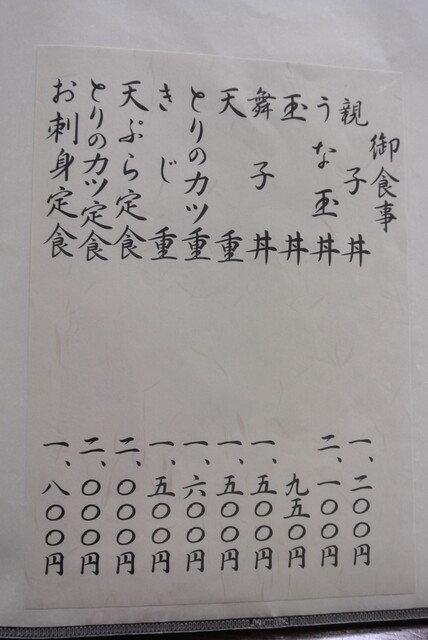 御食事
親子丼 一、二〇〇円
うな玉丼 二、一〇〇円
玉丼 九五〇円
舞子丼 一、五〇〇円
天重 一、五〇〇円
とりのカツ重 一、六〇〇円
きじ重 一、五〇〇円
天ぷら定食 二、〇〇〇円
とりのカツ定食 二、〇〇〇円
お刺身定食 一、八〇〇円